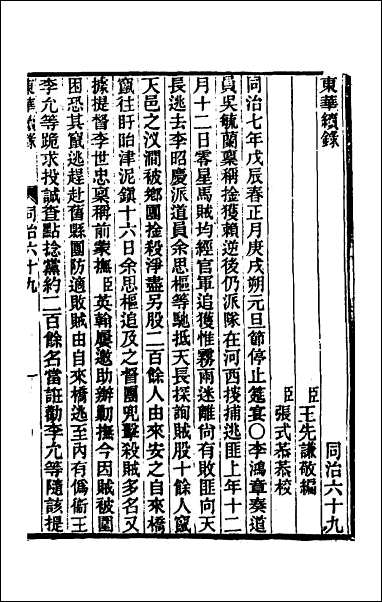 東華續錄　同治六十九
臣王先謙敬編
臣張式恭恭校
同治七年戊辰春正月庚戌朔元旦節停止筵宴○李鴻章奏道
員吳毓蘭稟稱捡獲賴逆後仍派隊在河西搜捕逃匪上年十二
月十二日零星馬賊均經官軍追獲惟霧雨迷離尙有敗匪向天
長逃去李昭慶派道員余思樞等馳抵天長探詢賊股十餘人竄
天邑之汊澗被鄉團捡殺淨盡另股二百餘人由來安之自來橋
竄往盱眙津泥鎭十六日余思樞追及之督團兜擊殺賊多名又
據提督李世忠稟稱前蒙撫臣英翰屢邀助辦勦撫今因賊被圍
困恐其竄逃趕赴舊縣團防適敗賊由自來橋逃至內有僞衞王
李允等跪求投誠查點捻黨約二百餘名當誑勸李允等隨該提
東華續錄　同治六十九　一